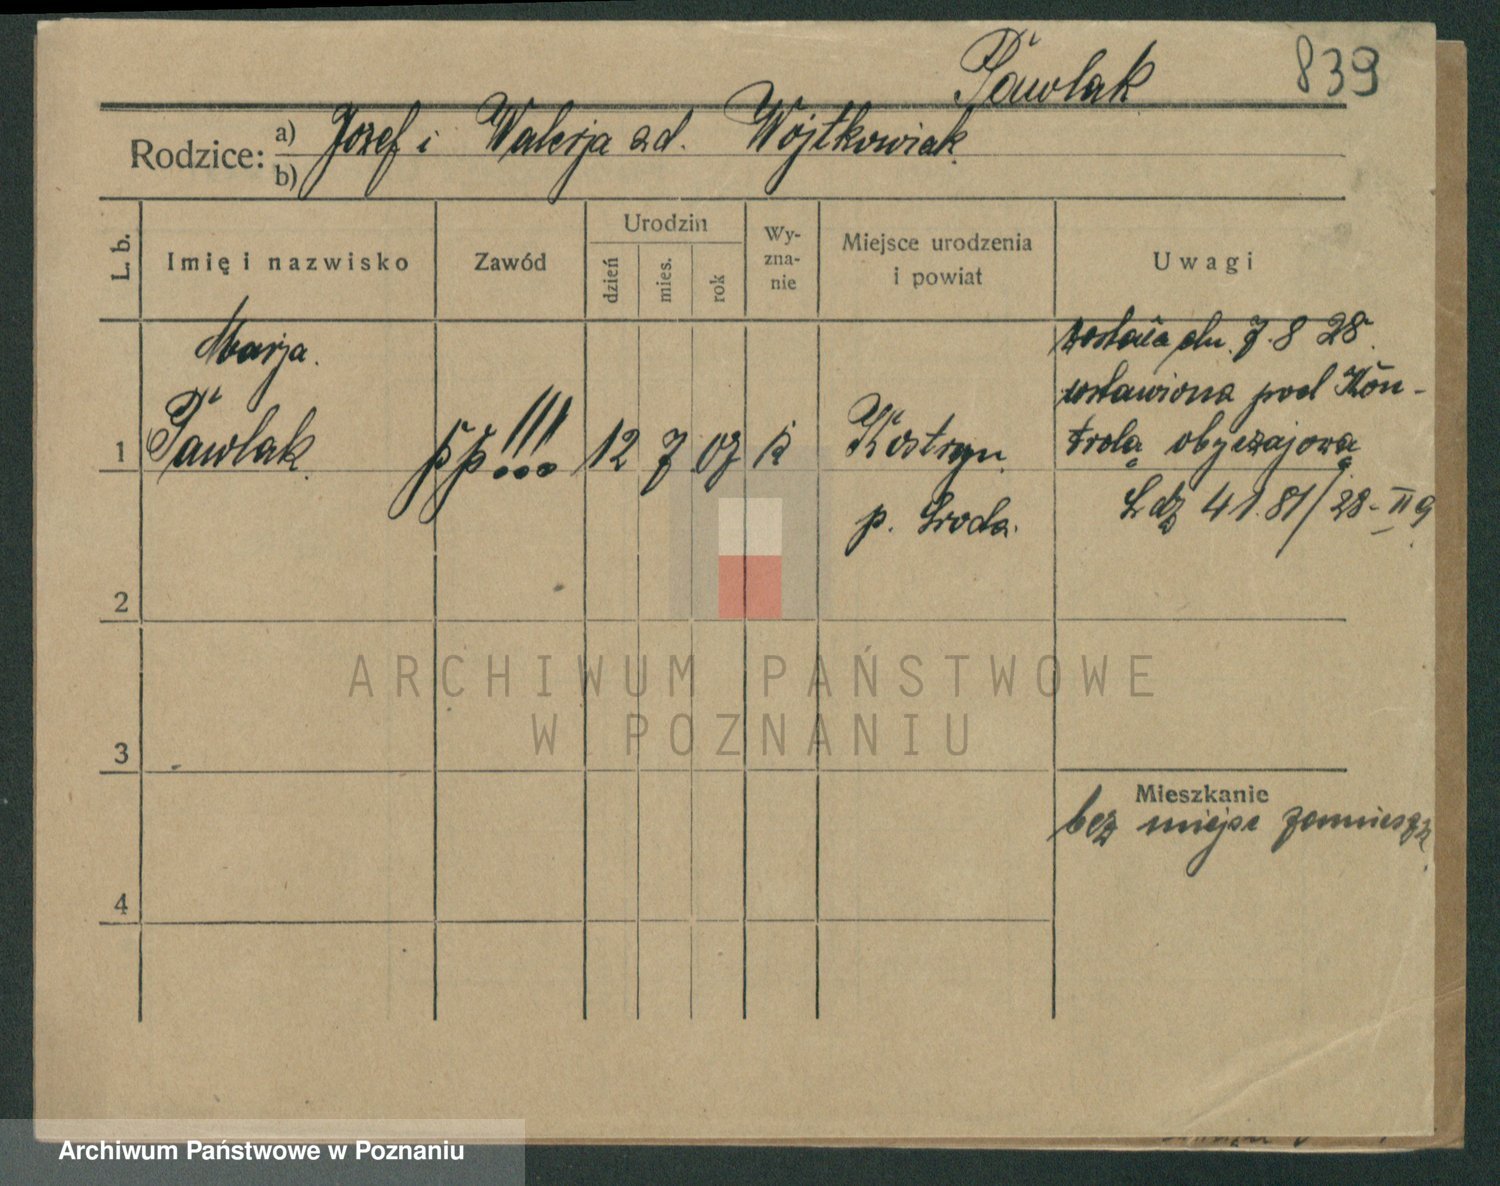 Pawlak 839
Rodzice: a) Józef i Walerja zd. Wojtkowiak
b)
L. b. Imię i nazwisko Zawód Urodzin dzień mies. rok Wy-zna-nie Miejsce urodzenia i powiat Uwagi
Marja. została dn. 7. 8 28.
wstawiona pod Kon-
1 Pawlak. pp!!! 12 7 07 k Kostrzyn. trolą obyczajową
p. Środa. L dz 41.81/28-II 9
2
ARCHIWUM PAŃSTWOWE
W POZNANIU
3
Mieszkanie
bez miejsc zamieszk
4
Archiwum Państwowe w Poznaniu